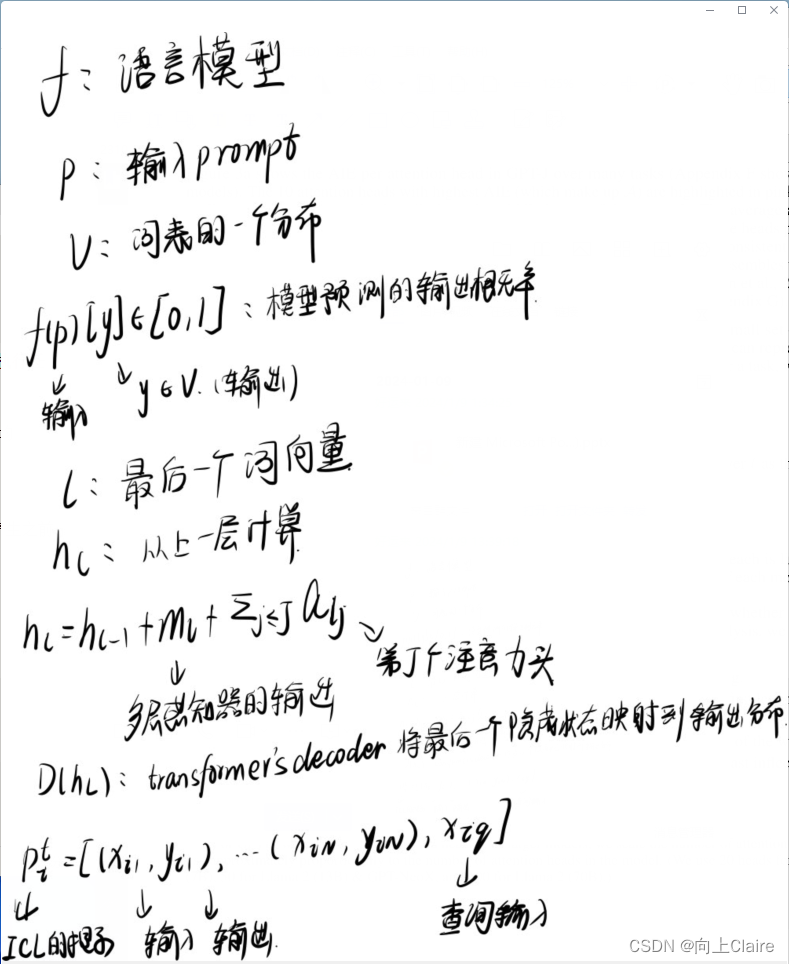 f：语言模型
p：输入prompt
V：词表的一个分布
f(p)[y]∈[0,1]：模型预测的输出概率
输入 y∈V.（输出）
l：最后一个词向量
hl：从上一层计算
hl=hl-1+ml+Σj≤J alj
第J个注意力头
多层感知器的输出
D(hL)：transformer's decoder 将最后一个隐藏状态映射到输出分布
pit=[(xi1,yi1),...(xiN,yiN),xiq]
ICL的提示 输入 输出 查询输入
CSDN @向上Claire